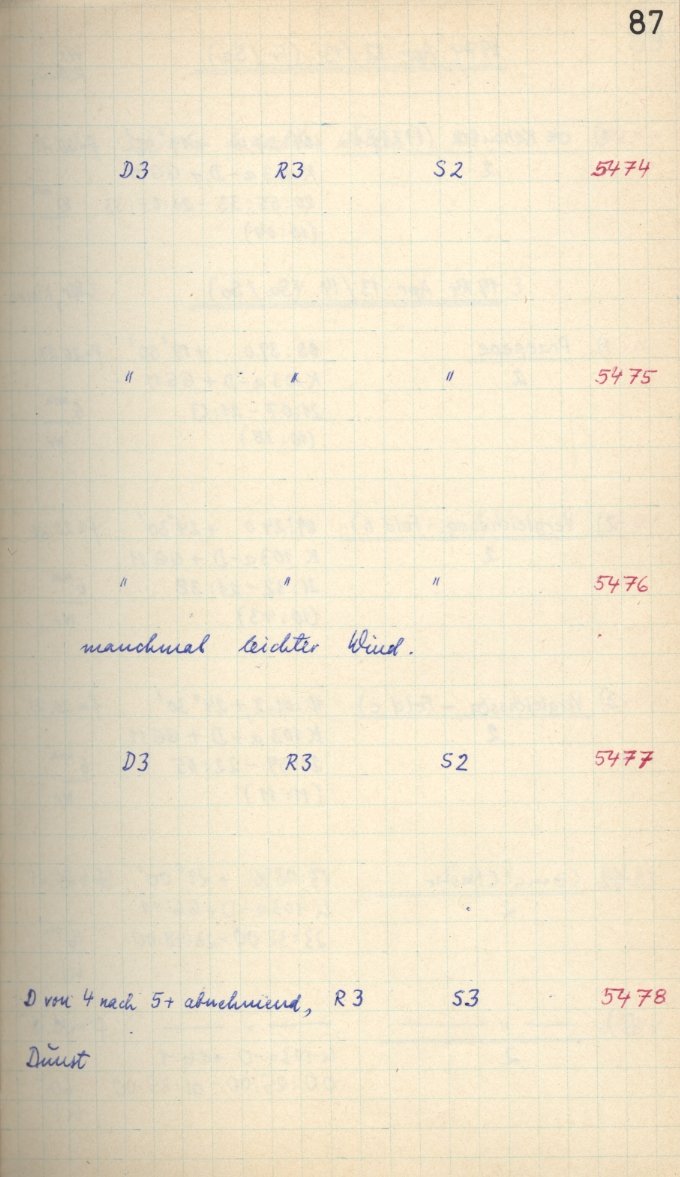 87
D3 R3 S2 5474
" " " 5475
" " " 5476
manchmal leichter Wind.
D3 R3 S2 5477
D von 4 nach 5+ abnehmend, R3 S3 5478
Dunst